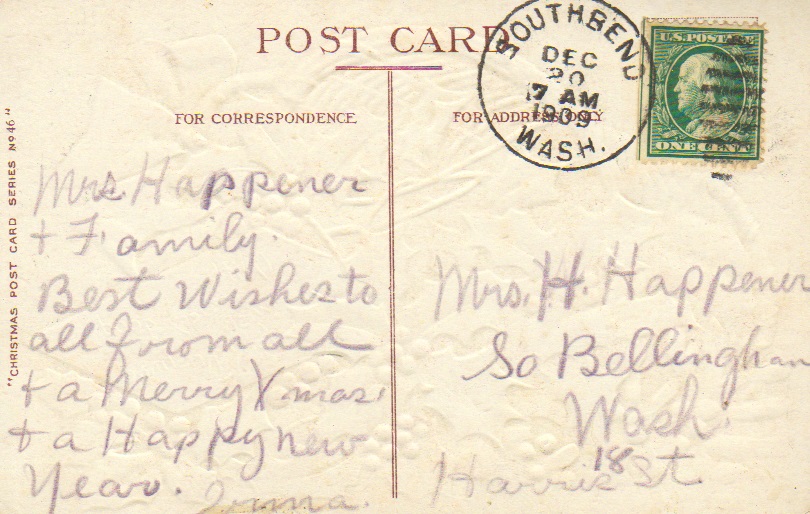 POST CARD
SOUTHBEND
DEC
20
7 AM
1909
WASH.
U.S. POSTAGE
ONE CENT
FOR CORRESPONDENCE
FOR ADDRESS ONLY
"CHRISTMAS POST CARD SERIES No 46"
Mrs. Happener
+ Family.
Best Wishes to
all from all
+ a Merry Xmas.
+ a Happy new
Year. Irma.
Mrs. H. Happener
So Bellingham
Wash.
18
Harris St.